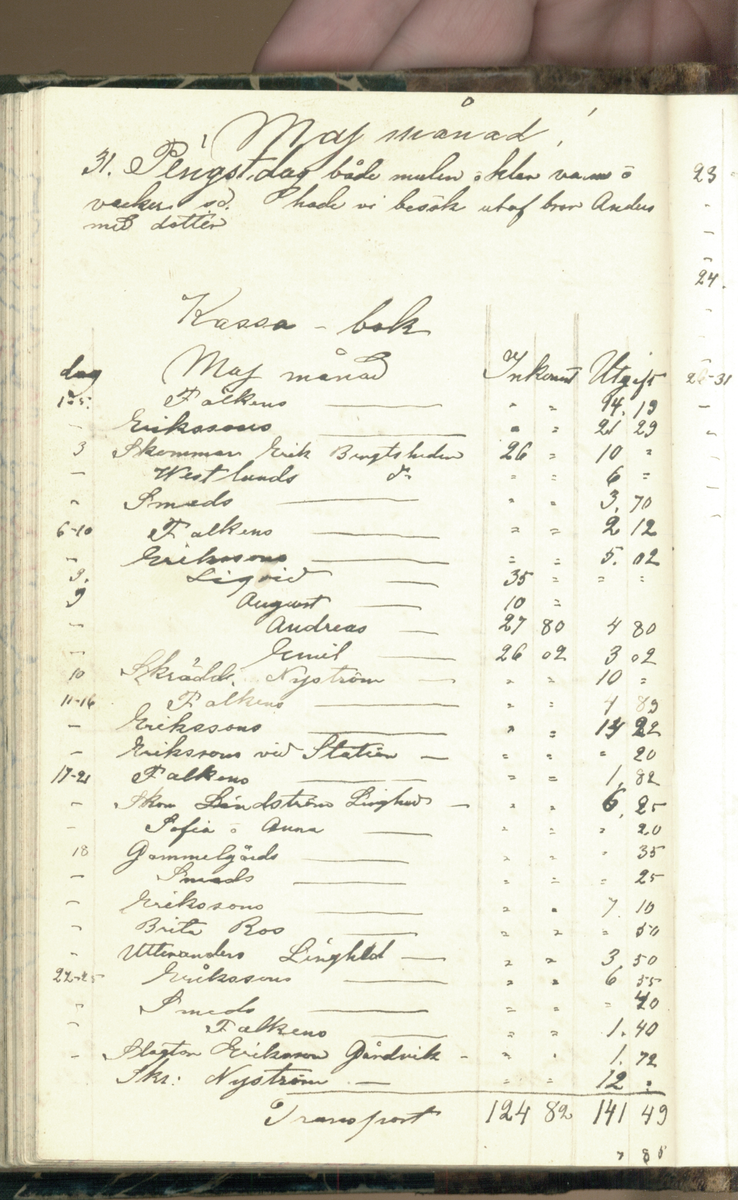 Maj månad!
31. Pingstdag både mulen o klar varm o
vacker, sö. P hade vi besök utaf bror Anders
med dotter
Kassa - bok
dag Maj månad Inkomst Utgift
1-5. Falkens — " " 14. 19
- Erikssons — " " 21 29
3 Skommar Erik Bengtsheden 26 = 10 "
- Westlunds d:o " = 6 =
" Smeds — " " 3, 70
6-10 Falkens — = = 2 12
- Erikssons — = = 5. 02
9. Liqvid — 35 = = =
9 August — 10 =
- Andreas — 27 80 4 80
- Emil — 26 02 3 02
10 Skrädd. Nyström — " " 10 =
11-16 Falkens — " " 4 89
- Erikssons — " " 14 22
- Erikssons vid Station — " " " 20
17-21 Falkens — = = 1, 82
- Skom Lindström Linghed — " " 6, 25
- Sofia o Anna — " " " 20
18 Gammelgårds — " " " 35
- Smeds — " " = 25
- Erikssons — " " 7. 10
" Brita Ros — " " " 50
" Utteranders Linghed — " " 3, 50
22-25 Erikssons — " " 6 55
" Smeds — " " " 40
" Falkens — " " 1. 40
- Slagtar Eriksson Gårdvik - " " 1. 72
Skr: Nyström — = = 12 :
Transport 124 82 141 49
" 85
23
24.
26-31